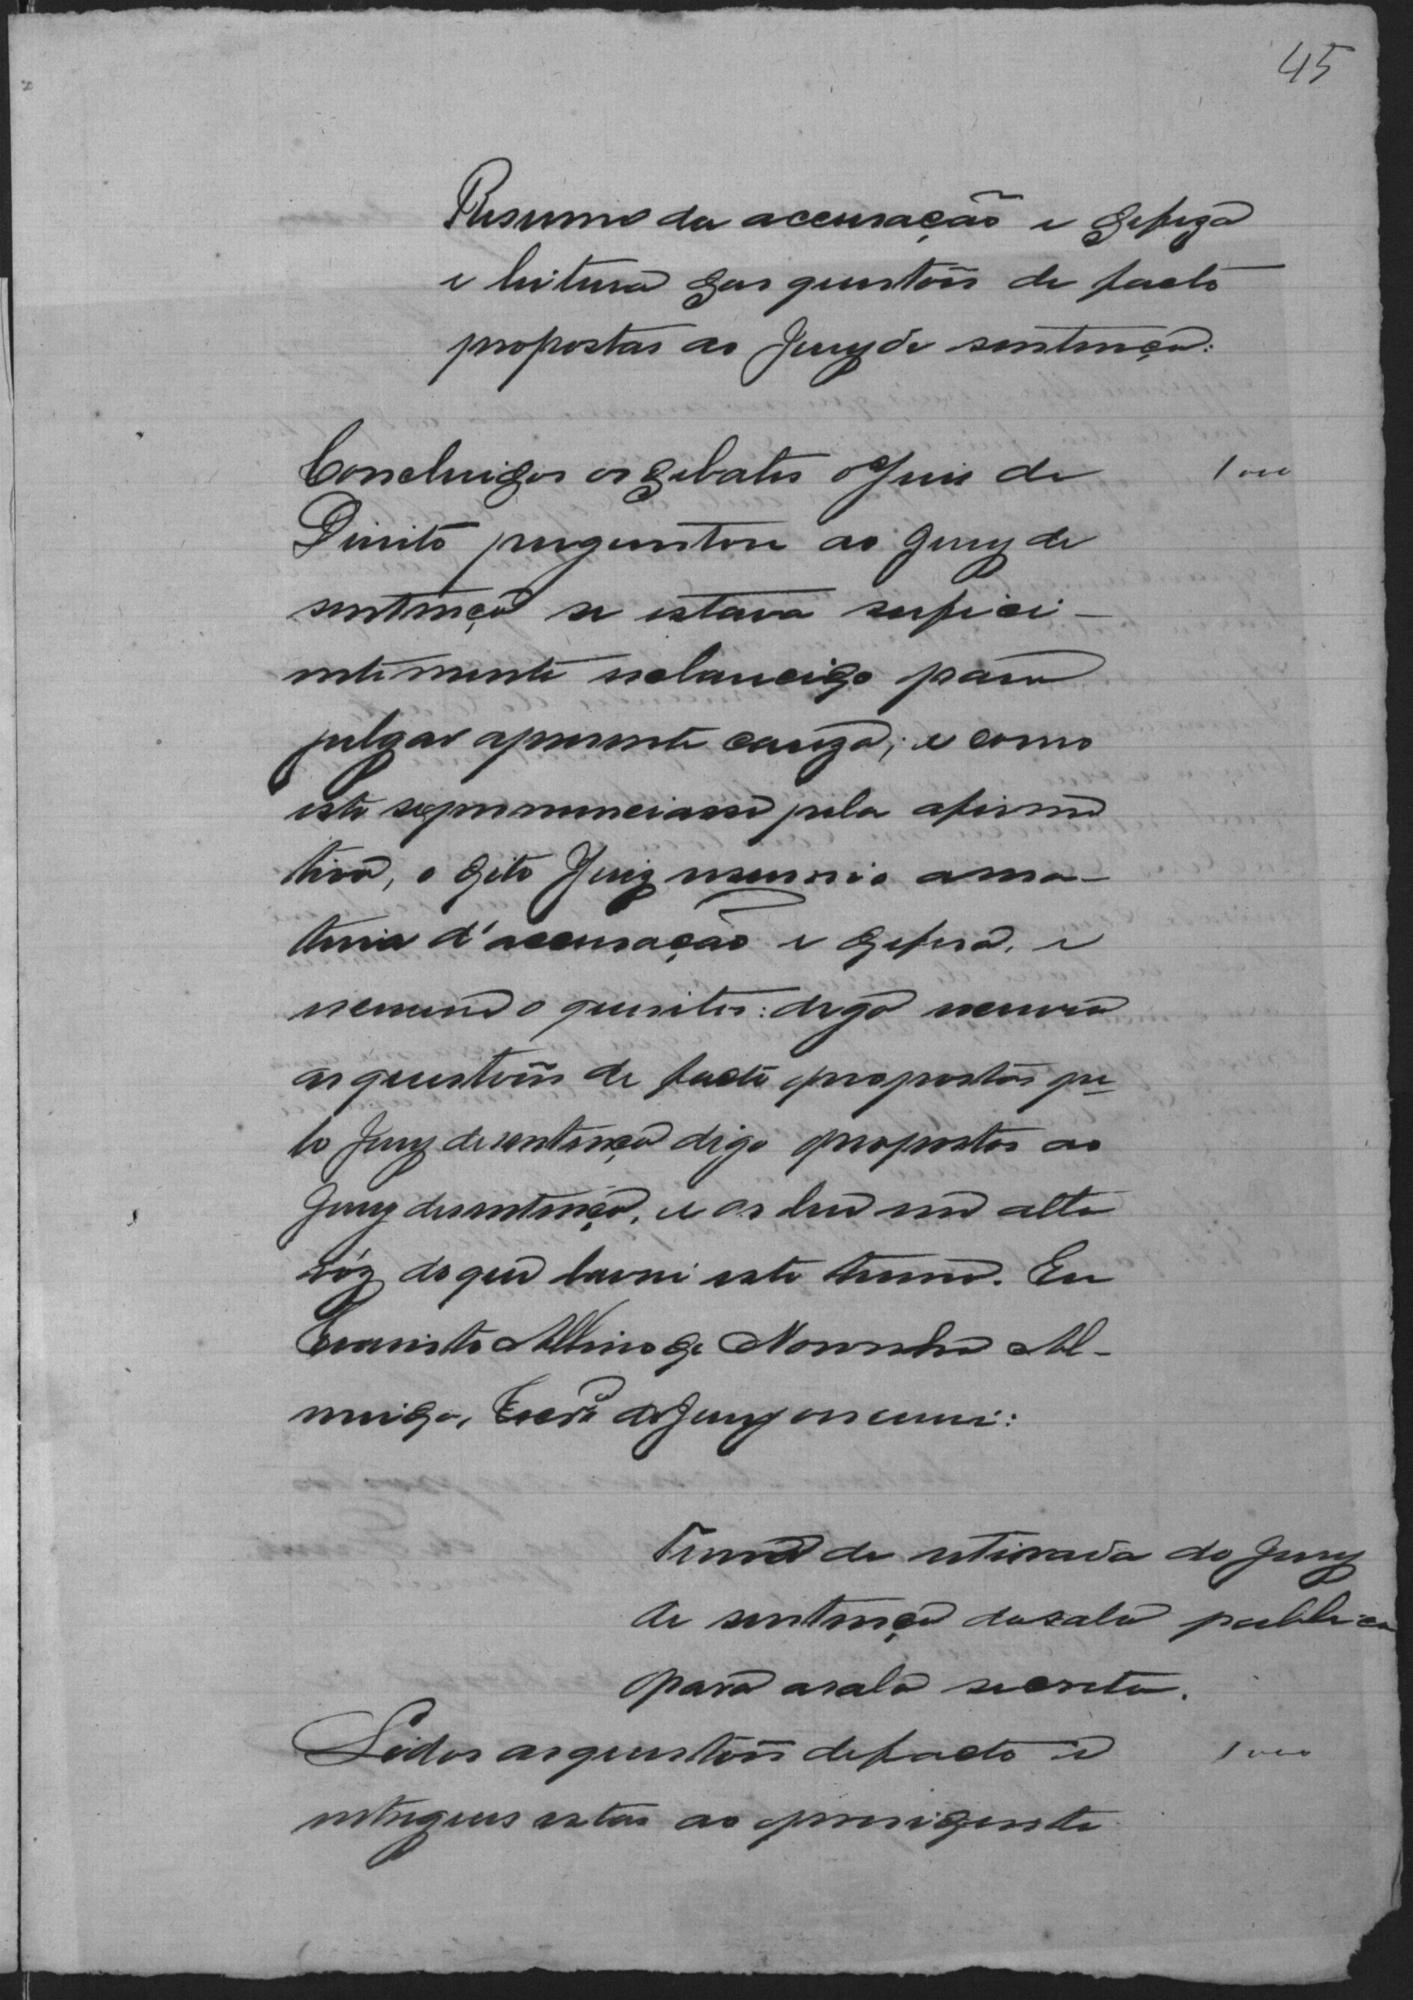 45
Resumo da accusação e defeza
e leitura das questões de facto
propostas ao Jury de sentença:
Concluidos os debates o Juis de
1000
Direito perguntou ao Jury de
sentença se estava sufici-
entemente esclarecido para
julgar apresente causa; e como
este se pronunciasse pela afirma
tiva, o dito Juiz resumio a ma-
teria d'accusação e defesa, e
escreveu o quesitos: digo escreveu
as questões de facto propostas pe-
lo Jury de sentença digo propostas ao
Jury de sentença, e as leu em alta
vóz do que lavrei este termo. Eu
Evaristo Albino de Noronha Al-
meida, Escrm do Jury o escrevi:
Termo de retirada do Jury
de sentença da sala publica
para a sala secreta.
Lidas as questões de facto e
1000
entregues estas ao presidente